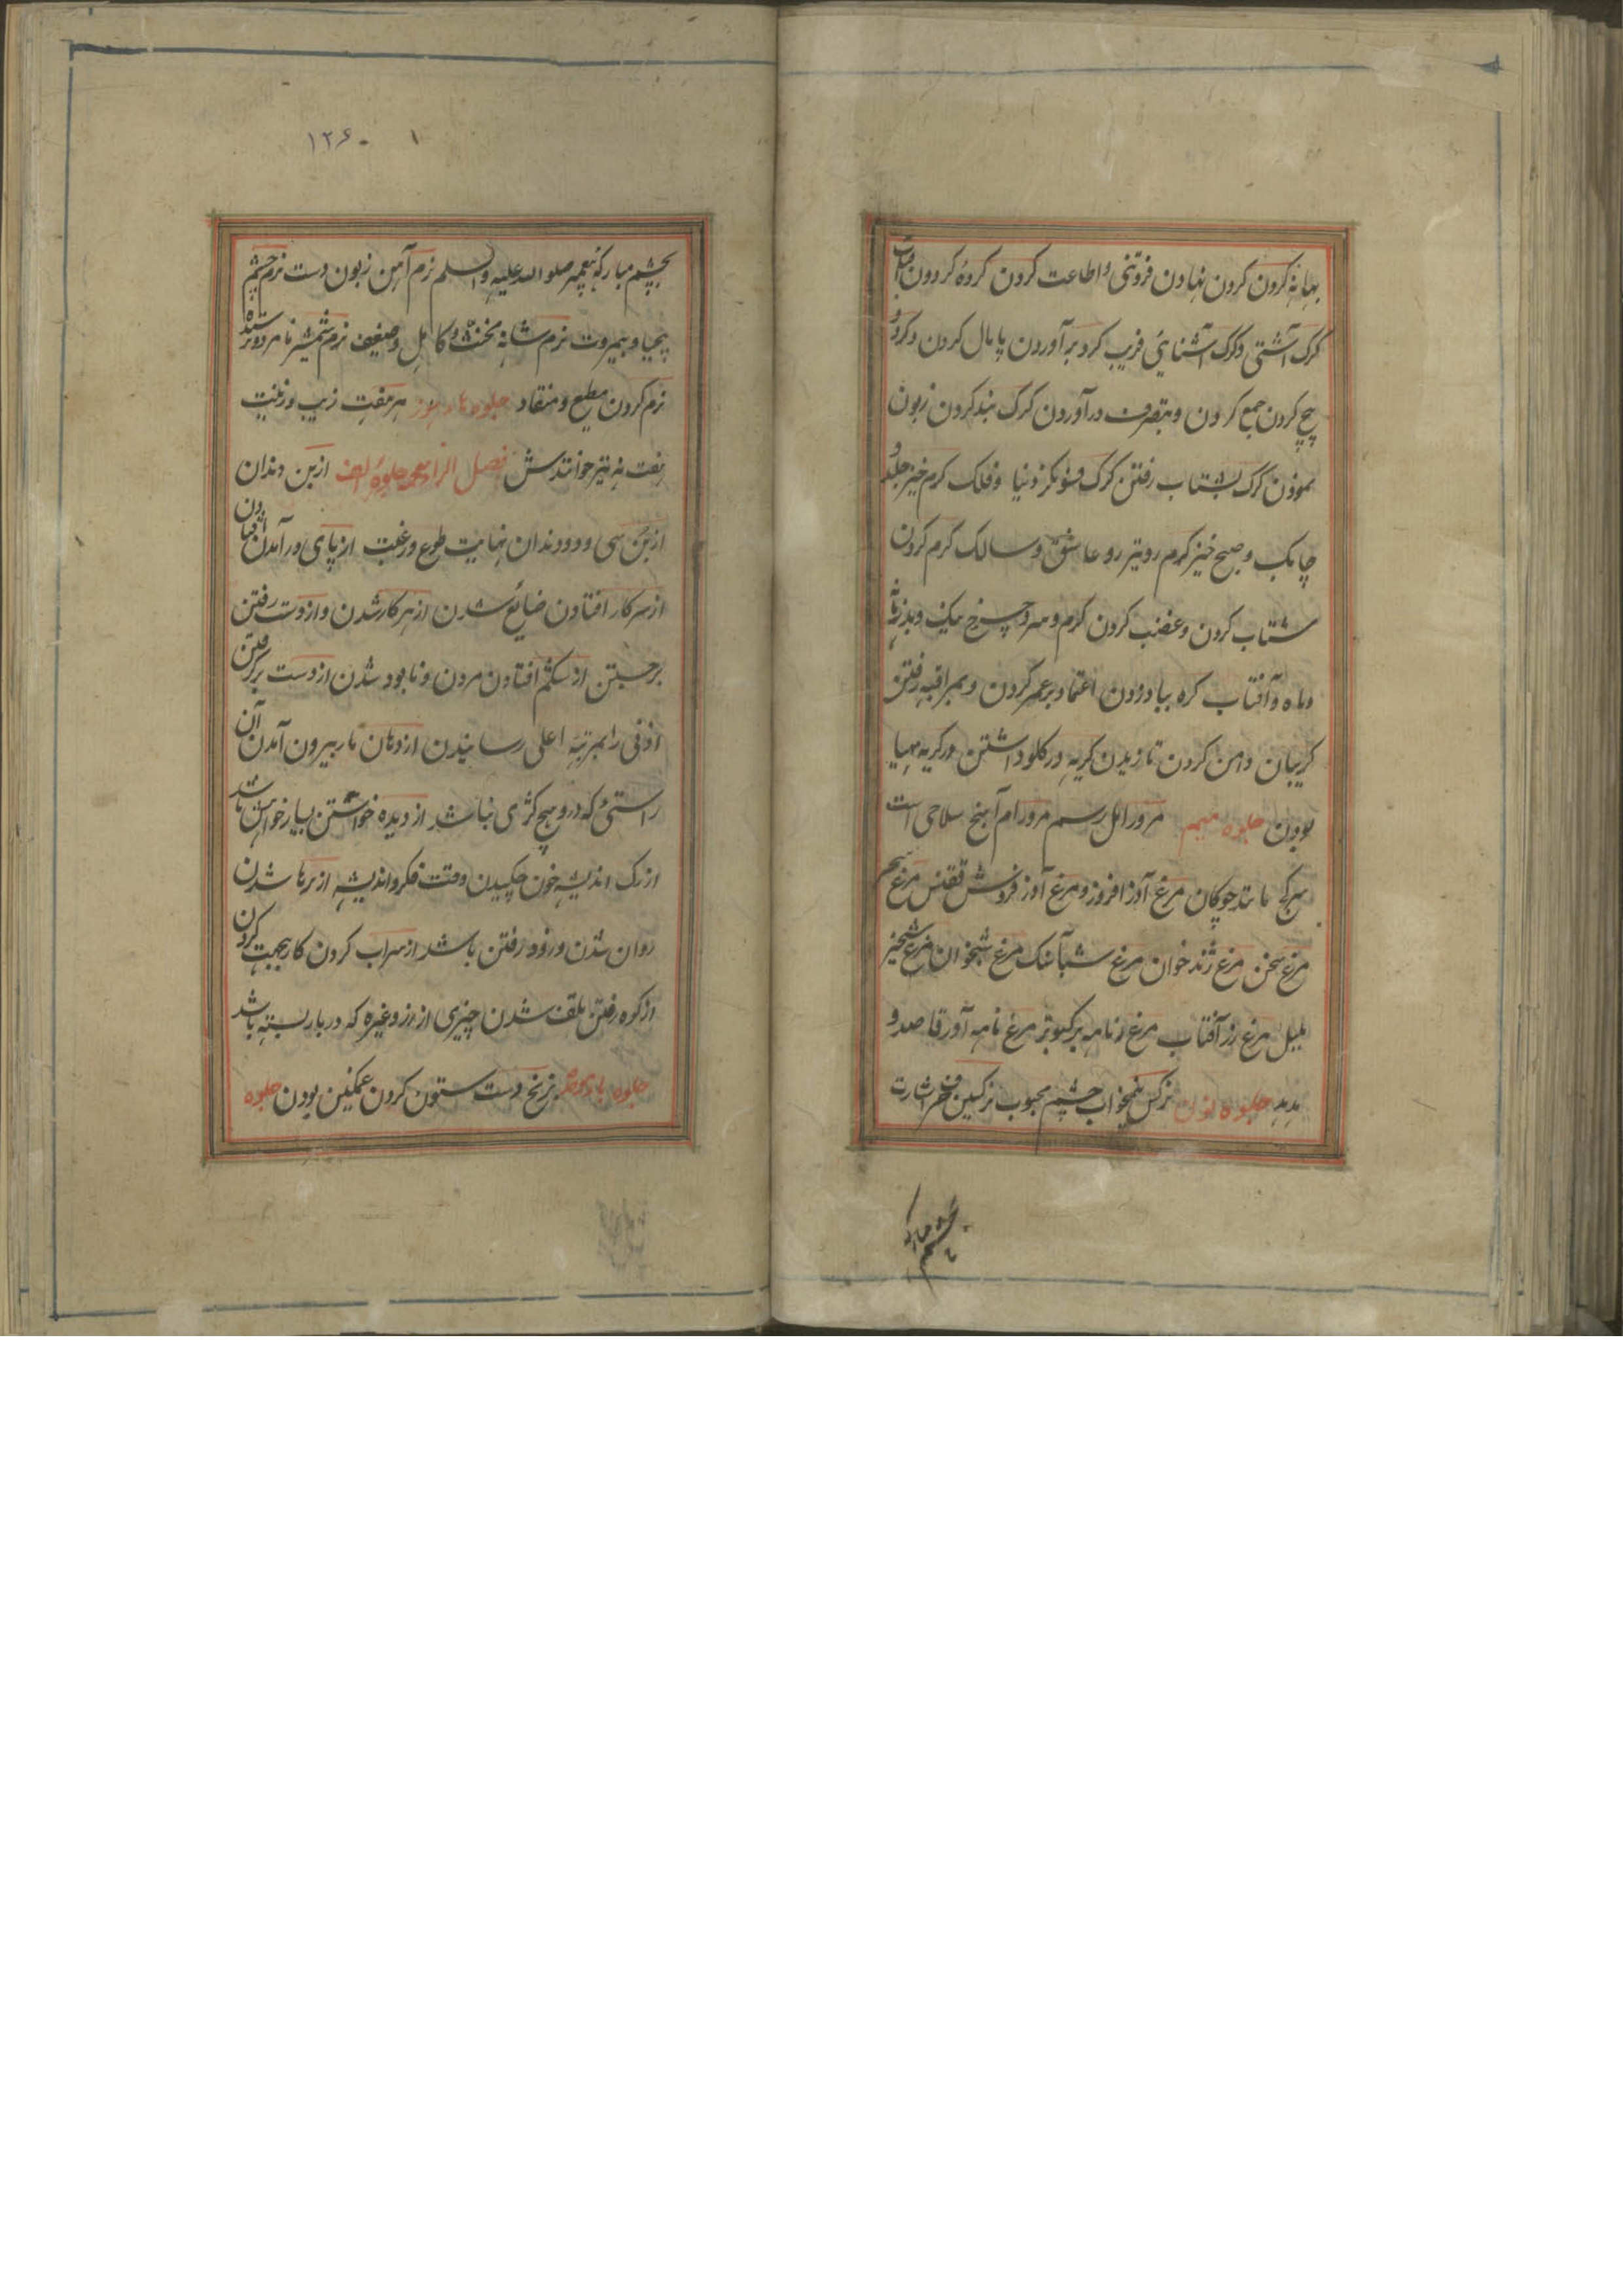 بهانه کردن کردن نهادن فروتنی و اطاعت کردن کردهٔ کردون آفتاب
کرک آشتی و کرک آشنایی فریب کرد برآوردن پامال کردن و کرد و
پیچ کردن جمع کردن و بتصرف درآوردن کرک بند کردن زبون
نمودن کرک بشتاب رفتن کرک فسونکر دنیا و فلک کرم خیز جلد و
چابک و صبح خیز کرم رو تیزرو عاشق و سالک کرم کردن
شتاب کردن و غضب کردن کرم و سرد چرخ نیک و بد زمانه
و ماه و آفتاب کره بباد زدن اعتماد بر عمر کردن و بمراقبه رفتن
کریبان دامن کردن تا زیدن کریه در کلو داشتن در کریه مهیا
بودن جلوه میم مرور امل رسم مرور ام آهنج سلاحی است
سرکج مانند چوکان مرغ آذر افروز و مرغ آذر فروش ققنس مرغ سحر
مرغ سخن مرغ زند خوان مرغ شباهنک مرغ شبخوان مرغ شبخیز
بلبل مرغ روز آفتاب مرغ نامه بر کبوتر مرغ نامه آور قاصد و
هدهد جلوه نون نرکس نیمخواب چشم محبوب نرکسین اشارت
بچشم مبارکه
۱۲۶۰ ۱
بچشم مبارکه پیغمبر صلوا الله علیه والسلم نرم آهن زبون دست نرم چشم
بیحیا و بیمروت نرم شانه مخنث و کاهل و ضعیف نرم شمشیر نامرد و ترسنده
نرم کردن مطیع و منقاد جلوه هاء هوز هر هفت زیب و زینت
هفت نه نیز خوانندش فصل الراء جلوه الف از بن دندان
از بن سی و دو دندان نهایت طوع و رغبت از پای درآمدن افتادن
از سر کار افتادن ضایع شدن از هر کار شدن و از دست رفتن
برجستن از شکم افتادن مردن و نابود شدن از دست برکرفتن
ادنی را بمرتبه اعلی رسانیدن از دهان مار بیرون آمدن آن
راستی که در و هیچ کژی نباشد از دیده خواستن بسیار خواهن باشد
از رک اندیشه خون چکیدن وقت فکر و اندیشه از برها شدن
روان شدن و زود رفتن باشد از سراب کردن کار بیجهت کردن
از کوه رفتن تلف شدن چیزی از زر و غیره که در بار بسته باشد
جلوه باء زنخ دست ستون کردن غمکین بودن جلوه